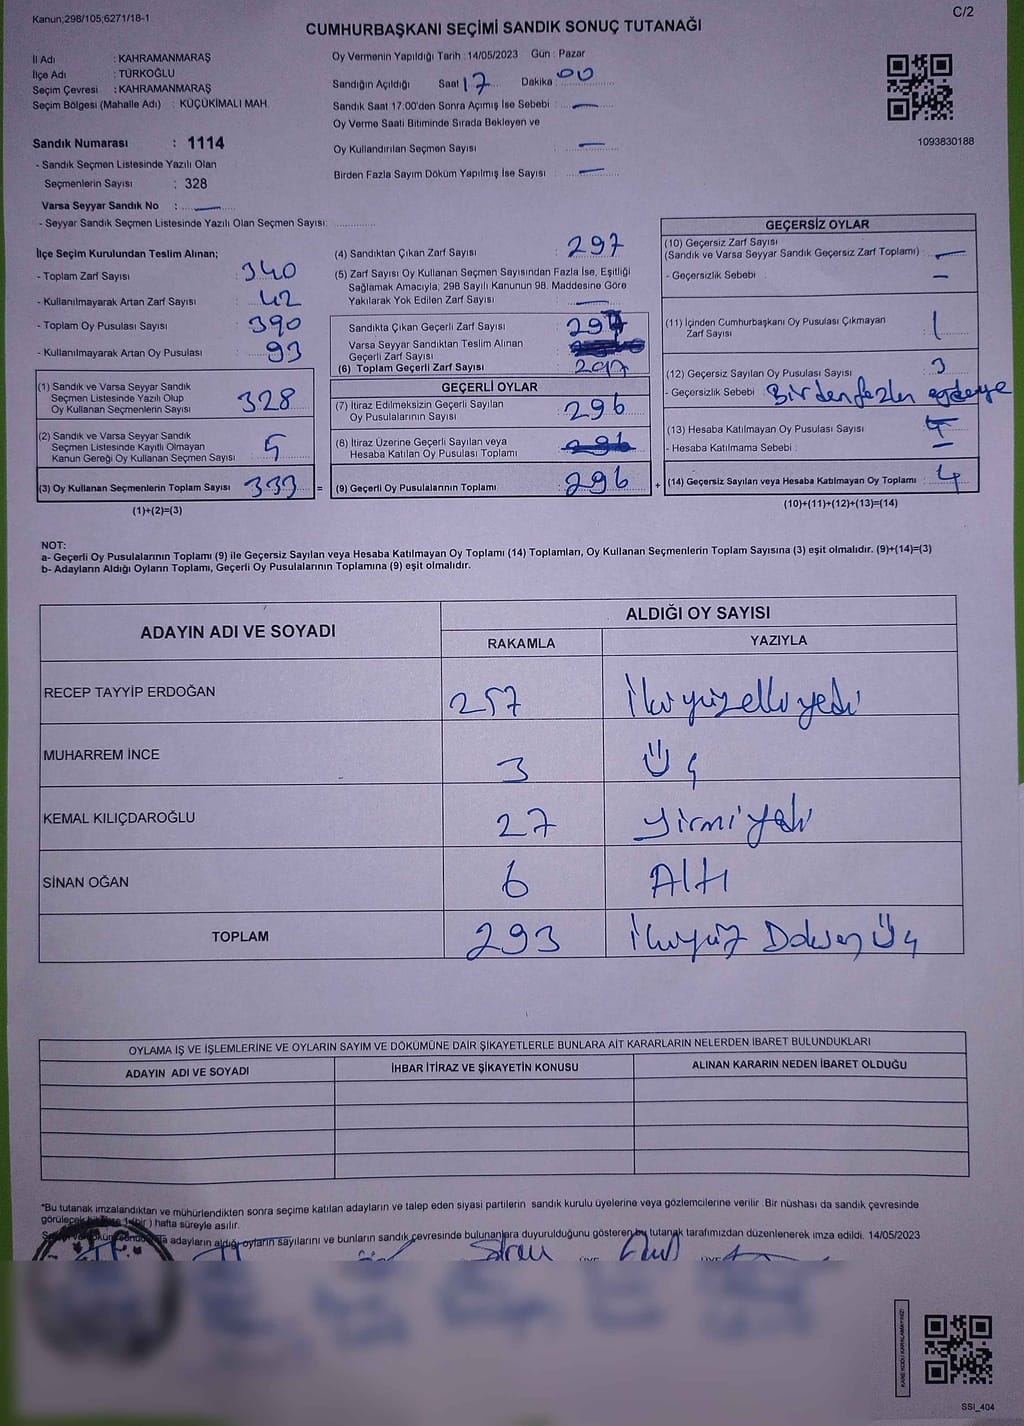 Kanun;298/105;6271/18-1
C/2
CUMHURBAŞKANI SEÇİMİ SANDIK SONUÇ TUTANAĞI
İl Adı : KAHRAMANMARAŞ
İlçe Adı : TÜRKOĞLU
Seçim Çevresi : KAHRAMANMARAŞ
Seçim Bölgesi (Mahalle Adı) : KÜÇÜKİMALI MAH.
Sandık Numarası : 1114
- Sandık Seçmen Listesinde Yazılı Olan
Seçmenlerin Sayısı : 328
Varsa Seyyar Sandık No : —
- Seyyar Sandık Seçmen Listesinde Yazılı Olan Seçmen Sayısı:
Oy Vermenin Yapıldığı Tarih : 14/05/2023 Gün : Pazar
Sandığın Açıldığı Saat 17 Dakika 00
Sandık Saat 17:00'den Sonra Açımış İse Sebebi : —
Oy Verme Saati Bitiminde Sırada Bekleyen ve
Oy Kullandırılan Seçmen Sayısı : —
Birden Fazla Sayım Döküm Yapılmış İse Sayısı : —
1093830188
İlçe Seçim Kurulundan Teslim Alınan;
- Toplam Zarf Sayısı : 340
- Kullanılmayarak Artan Zarf Sayısı : 42
- Toplam Oy Pusulası Sayısı : 390
- Kullanılmayarak Artan Oy Pusulası : 93
(1) Sandık ve Varsa Seyyar Sandık
Seçmen Listesinde Yazılı Olup
Oy Kullanan Seçmenlerin Sayısı 328
(2) Sandık ve Varsa Seyyar Sandık
Seçmen Listesinde Kayıtlı Olmayan
Kanun Gereği Oy Kullanan Seçmen Sayısı 5
(3) Oy Kullanan Seçmenlerin Toplam Sayısı 333 =
(1)+(2)=(3)
(4) Sandıktan Çıkan Zarf Sayısı : 297
(5) Zarf Sayısı Oy Kullanan Seçmen Sayısından Fazla İse, Eşitliği
Sağlamak Amacıyla, 298 Sayılı Kanunun 98. Maddesine Göre
Yakılarak Yok Edilen Zarf Sayısı : —
Sandıkta Çıkan Geçerli Zarf Sayısı : 297
Varsa Seyyar Sandıktan Teslim Alınan
Geçerli Zarf Sayısı
(6) Toplam Geçerli Zarf Sayısı :
GEÇERLİ OYLAR
(7) İtiraz Edilmeksizin Geçerli Sayılan
Oy Pusulalarının Sayısı : 296
(8) İtiraz Üzerine Geçerli Sayılan veya
Hesaba Katılan Oy Pusulası Toplamı : 296
(9) Geçerli Oy Pusulalarının Toplamı : 296 +
GEÇERSİZ OYLAR
(10) Geçersiz Zarf Sayısı
(Sandık ve Varsa Seyyar Sandık Geçersiz Zarf Toplamı) : —
- Geçersizlik Sebebi : —
(11) İçinden Cumhurbaşkanı Oy Pusulası Çıkmayan
Zarf Sayısı : 1
(12) Geçersiz Oy Pusulası Sayısı : 3
- Geçersizlik Sebebi : Birden fazla
(13) Hesaba Katılmayan Oy Pusulası Sayısı :
- Hesaba Katılmama Sebebi : —
(14) Geçersiz Sayılan veya Hesaba Katılmayan Oy Toplamı : 4
(10)+(11)+(12)+(13)=(14)
NOT:
a- Geçerli Oy Pusulalarının Toplamı (9) ile Geçersiz Sayılan veya Hesaba Katılmayan Oy Toplamı (14) Toplamları, Oy Kullanan Seçmenlerin Toplam Sayısına (3) eşit olmalıdır. (9)+(14)=(3)
b- Adayların Aldığı Oyların Toplamı, Geçerli Oy Pusulalarının Toplamına (9) eşit olmalıdır.
ADAYIN ADI VE SOYADI
ALDIĞI OY SAYISI
RAKAMLA YAZIYLA
RECEP TAYYİP ERDOĞAN 257 İkiyüzelliyedi
MUHARREM İNCE 3 Üç
KEMAL KILIÇDAROĞLU 27 yirmiyedi
SİNAN OĞAN 6 Altı
TOPLAM 293 İkiyüz Doksan Üç
OYLAMA İŞ VE İŞLEMLERİNE VE OYLARIN SAYIM VE DÖKÜMÜNE DAİR ŞİKAYETLERLE BUNLARA AİT KARARLARIN NELERDEN İBARET BULUNDUKLARI
ADAYIN ADI VE SOYADI İHBAR İTİRAZ VE ŞİKAYETİN KONUSU ALINAN KARARIN NEDEN İBARET OLDUĞU
*Bu tutanak imzalandıktan ve mühürlendikten sonra seçime katılan adayların ve talep eden siyasi partilerin sandık kurulu üyelerine veya gözlemcilerine verilir. Bir nüshası da sandık çevresinde
görülecek bir yere 1 (bir) hafta süreyle asılır.
adayların aldığı oyların sayılarını ve bunların sandık çevresinde bulunanlara duyurulduğunu gösteren bu tutanak tarafımızdan düzenlenerek imza edildi. 14/05/2023
SSİ_404